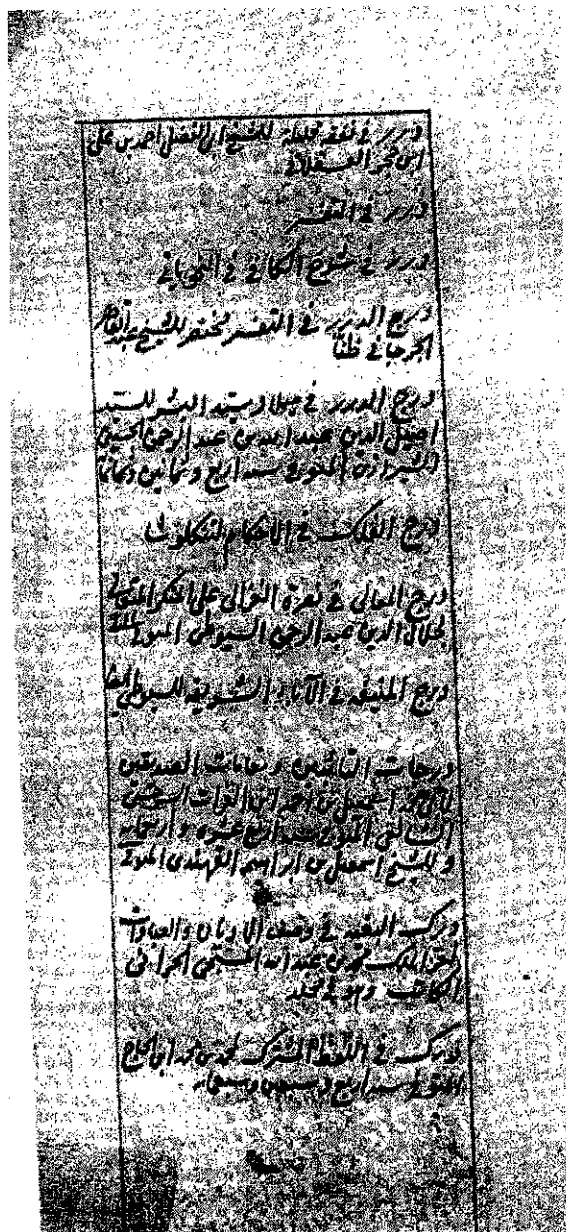 درر في فقه للشيخ ابي الفضل احمد بن علي
ابن حجر العسقلاني
درر في التفسير
درر في شرح الكافي في
درج الدرر في التفسير مختصر للشيخ عبد القاهر
الجرجاني ظنا
درج الدرر في ميلاد سيد البشر للسيد
اصيل الدين عبد الله بن عبد الرحمن الحسيني
الشيرازي المتوفى سنة اربع وثمانين وثمانمائة
درج الفلك في الاحكام لتنكلوشا
درج المعالي في نصرة الغزالي على المنكر المتغالي
لجلال الدين عبد الرحمن السيوطي المتوفى سنة
درج المنيفة في الآباء الشريفة للسيوطي
درجات التائبين ومقامات الصديقين
لابي محمد اسمعيل بن احمد ابن الفرات السرخسي
الشافعي المتوفى سنة اربع عشرة واربعمائة
وللشيخ اسمعيل بن ابراهيم القهندزي المتوفى
درك البغية في وصف الاديان والعبادات
لعز الملك محمد بن عبد الله المسبحي الحراني
الكاتب وهو في مجلد
درك في اللفظ المشترك لمحمد بن محمد ابن الحاج
المتوفى سنة اربع وسبعين وسبعمائة